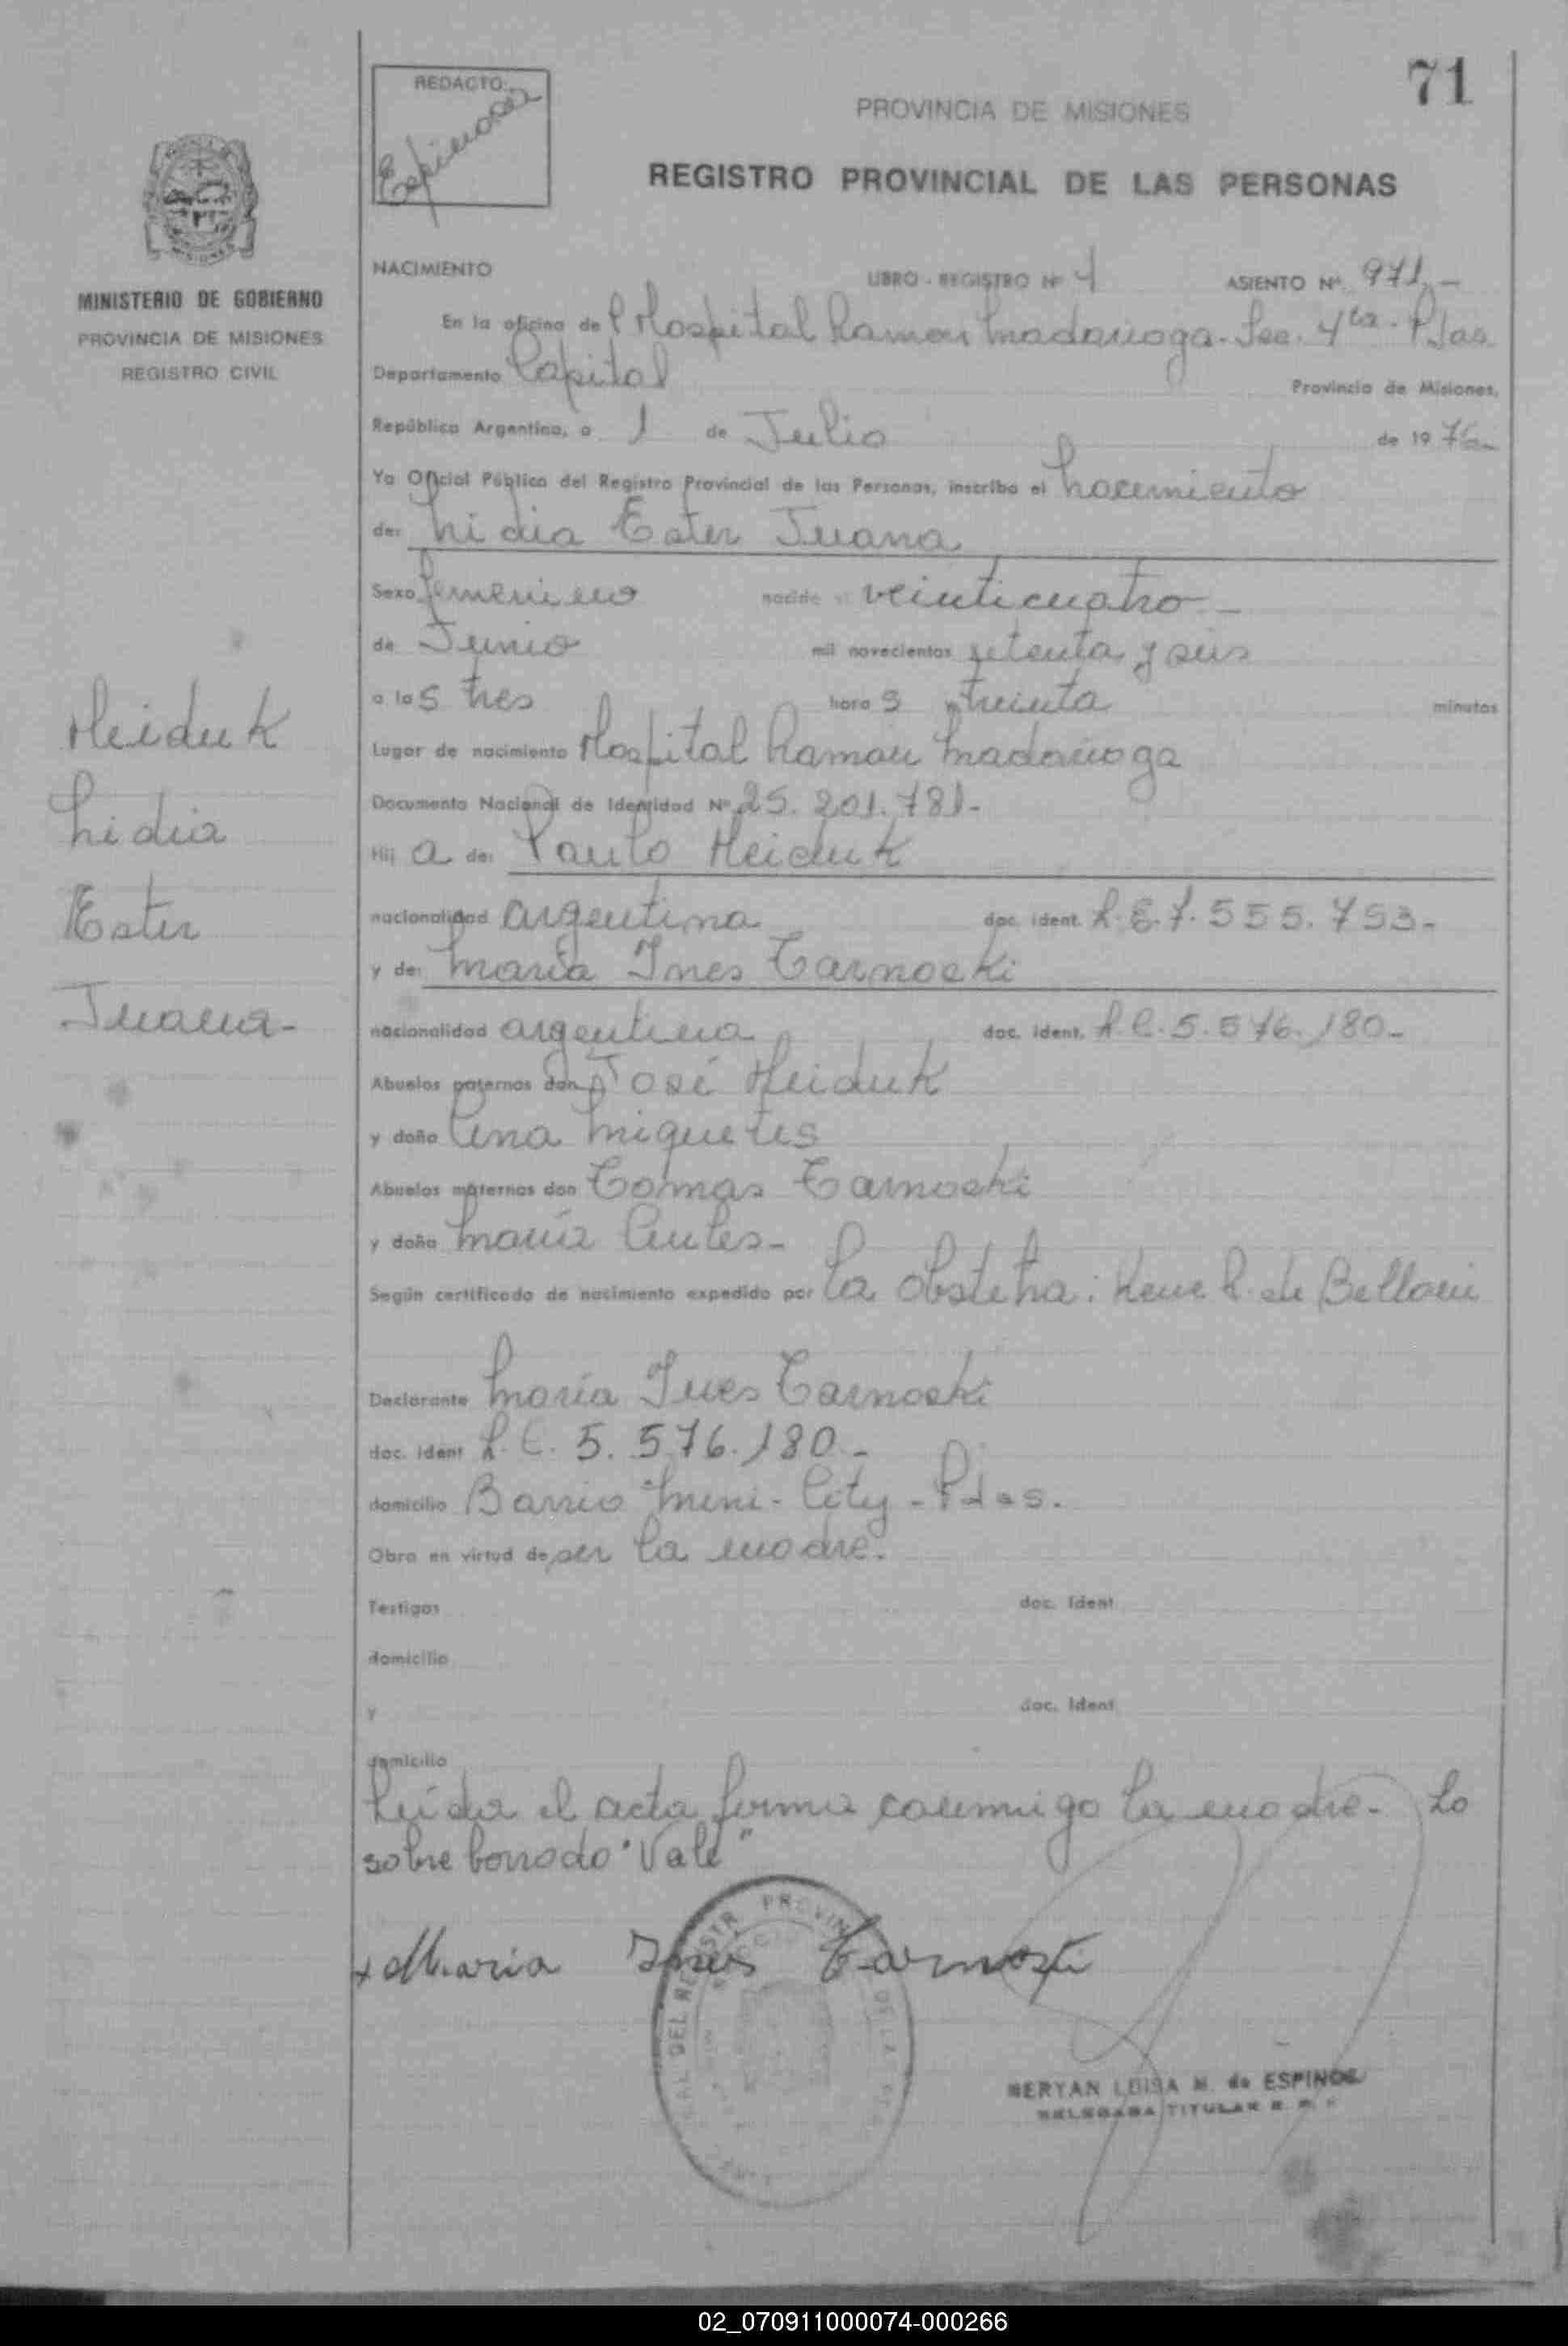 71
REDACTO:
Espinosa
PROVINCIA DE MISIONES
REGISTRO PROVINCIAL DE LAS PERSONAS
MISIONES
MINISTERIO DE GOBIERNO
PROVINCIA DE MISIONES
REGISTRO CIVIL
NACIMIENTO LIBRO - REGISTRO Nº 4 ASIENTO Nº 971.-
En la oficina de l Hospital Ramón Madariaga. Sec. 4ta. Pdas
Departamento Capital Provincia de Misiones,
República Argentina, a 1 de Julio de 1976-
Yo Oficial Público del Registro Provincial de las Personas, inscribo el Nacimiento
de: Lidia Ester Juana
Sexo femenino nacido el veinticuatro -
de Junio mil novecientos setenta y seis
a las tres horas treinta minutos
Lugar de nacimiento Hospital Ramón Madariaga
Documento Nacional de Identidad Nº 25.201.781-
Hij a de: Paulo Heiduk
nacionalidad argentina doc. ident. L.E.7.555.753-
y de: María Ines Tarnoski
nacionalidad argentina doc. ident. L.C.5.576.180-
Abuelos paternos don José Heiduk
y doña Ana
Abuelos maternos don Tomas Tarnoski
y doña María
Según certificado de nacimiento expedido por la obstetra: de
Declarante María Ines Tarnoski
doc. ident L.C. 5.576.180.-
domicilio Barrio Mini-City - Pdas.
Obra en virtud de ser la madre.
Testigos doc. ident.
domicilio
y doc. ident.
domicilio
Leída el acta firma conmigo la madre- Lo
sobre borrado "Vale"
Heiduk
Lidia
Ester
Juana-
x Maria Ines Tarnoski
NERYAN LUISA M. de ESPINOSA
DELEGADA TITULAR R. P. P.
02_070911000074-000266